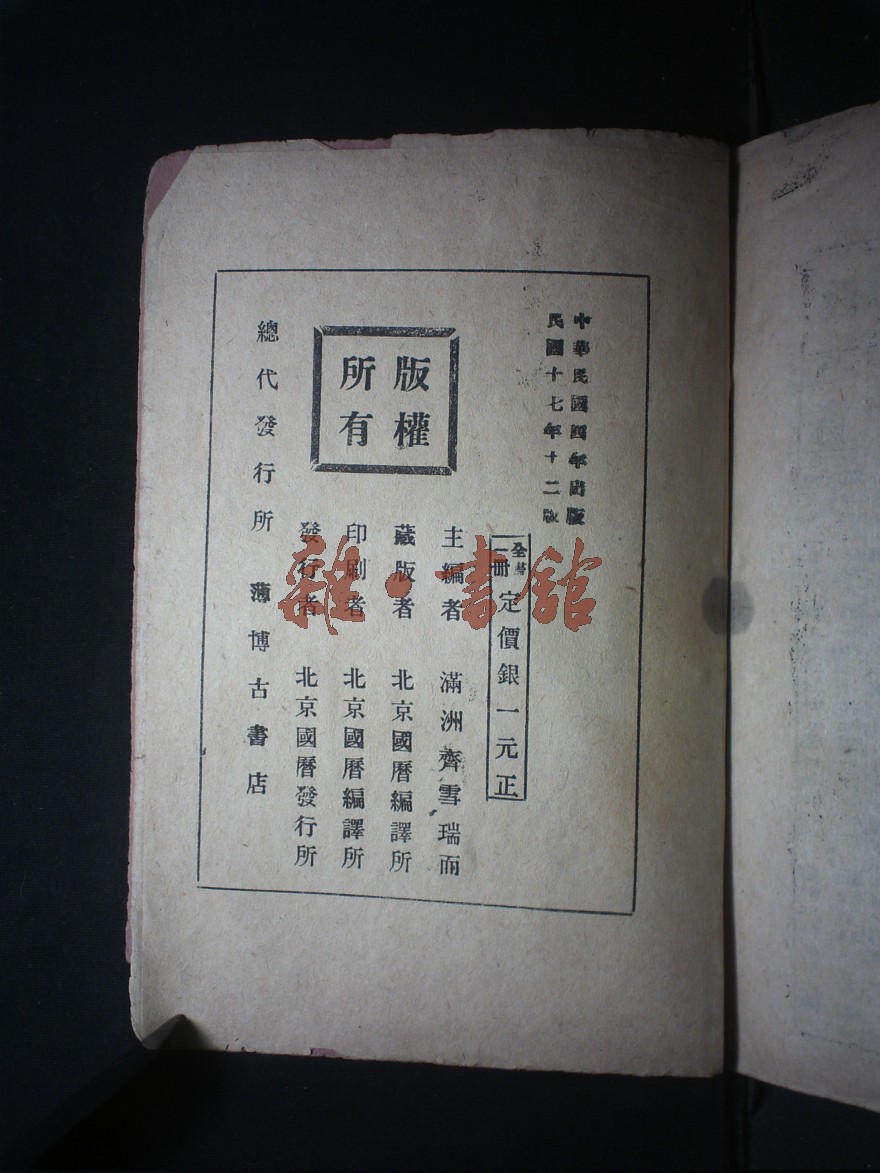 中華民國四年出版
民國十七年十二版
全書一冊 定價銀一元正
主編者 滿洲齊雪瑞甫
藏版者 北京國曆編譯所
印刷者 北京國曆編譯所
發行者 北京國曆發行所
版權
所有
總代發行所 薄博古書店
雜·書館